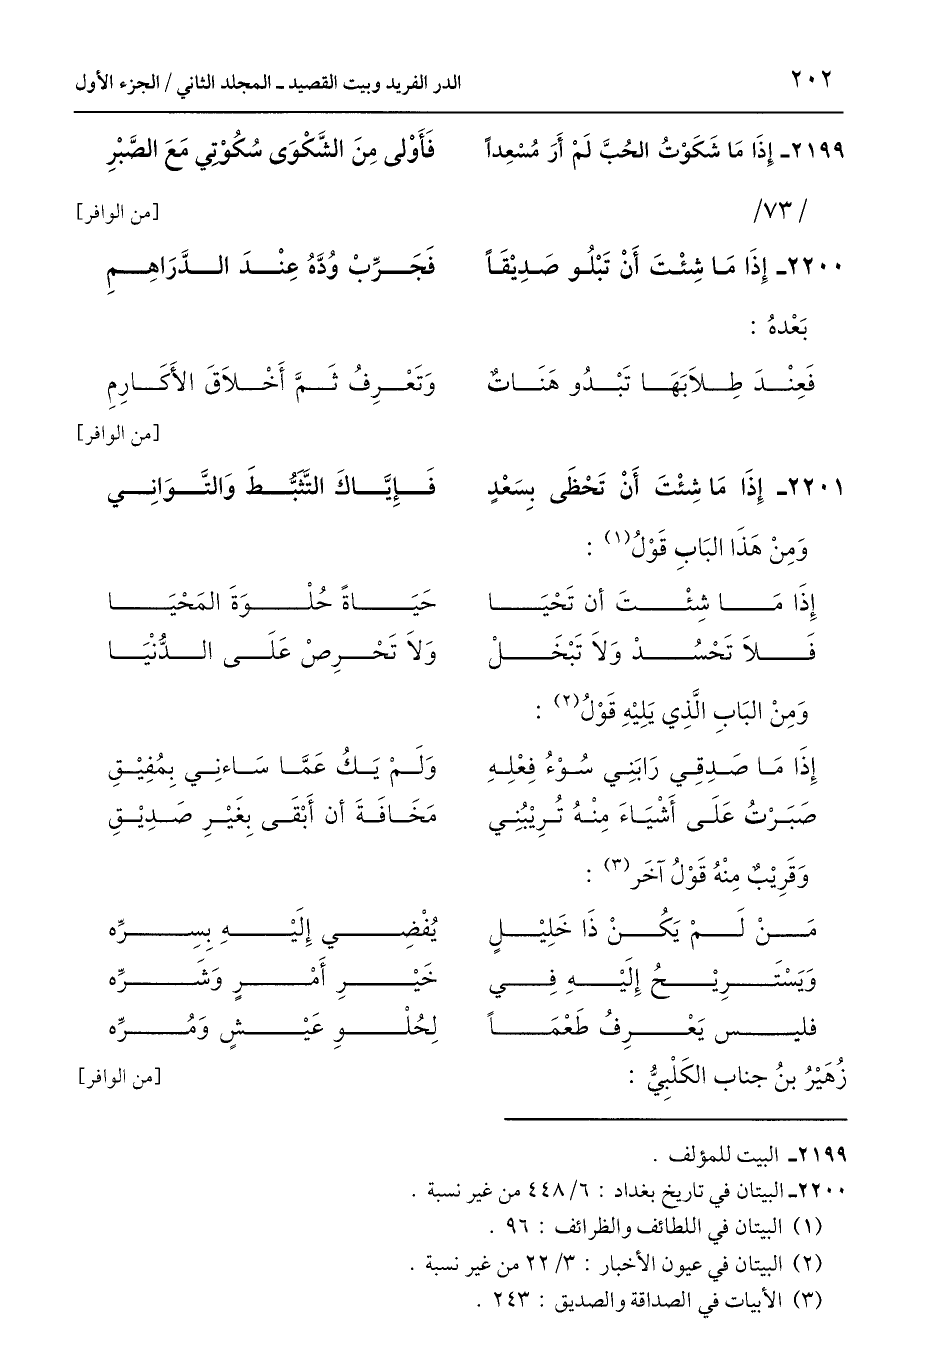 ٢٠٢ الدر الفريد وبيت القصيد ـ المجلد الثاني / الجزء الأول
٢١٩٩ـ إِذَا مَا شَكَوْتُ الحُبَّ لَمْ أَرَ مُسْعِداً فَأَوْلى مِنَ الشَّكْوَى سُكُوْتِي مَعَ الصَّبْرِ
/ ٧٣/ [من الوافر]
٢٢٠٠ـ إِذَا مَا شِئْتَ أَنْ تَبْلُو صَدِيْقَاً فَجَرِّبْ وُدَّهُ عِنْدَ الدَّرَاهِمِ
بَعْدهُ :
فَعِنْدَ طِلاَبَهَا تَبْدُو هَنَاتٌ وَتَعْرِفُ ثَمَّ أَخْلاَقَ الأَكَارِمِ
[من الوافر]
٢٢٠١ـ إِذَا مَا شِئْتَ أَنْ تَحْظَى بِسَعْدٍ فَإِيَّاكَ التَّثَبُّطَ وَالتَّوَانِي
وَمِنْ هَذَا البَابِ قَوْلُ(١) :
إِذَا مَا شِئْتَ أن تَحْيَا حَيَاةً حُلْوَةَ المَحْيَا
فَلاَ تَحْسُدْ وَلاَ تَبْخَلْ وَلاَ تَحْرِصْ عَلَى الدُّنْيَا
وَمِنْ البَابِ الَّذِي يَلِيْهِ قَوْلُ(٢) :
إِذَا مَا صَدِقِي رَابَنِي سُوْءُ فِعْلِهِ وَلَمْ يَكُ عَمَّا سَاءنِي بِمُفِيْقِ
صَبَرْتُ عَلَى أَشْيَاءَ مِنْهُ تُرِيْبُنِي مَخَافَةَ أن أَبْقَى بِغَيْرِ صَدِيْقِ
وَقَرِيْبٌ مِنْهُ قَوْلُ آخَر(٣) :
مَنْ لَمْ يَكُنْ ذَا خَلِيْلٍ يُفْضِي إِلَيْهِ بِسِرِّه
وَيَسْتَرِيْحُ إِلَيْهِ فِي خَيْرِ أَمْرٍ وَشَرِّه
فليس يَعْرِفُ طَعْمَاً لِحُلْوِ عَيْشٍ وَمُرِّه
زُهَيْرُ بنُ جناب الكَلْبِيُّ : [من الوافر]
٢١٩٩ـ البيت للمؤلف .
٢٢٠٠ـ البيتان في تاريخ بغداد : ٦/ ٤٤٨ من غير نسبة .
(١) البيتان في اللطائف والظرائف : ٩٦ .
(٢) البيتان في عيون الأخبار : ٣/ ٢٢ من غير نسبة .
(٣) الأبيات في الصداقة والصديق : ٢٤٣ .